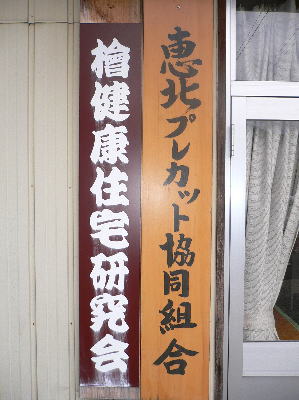 恵北プレカット協同組合
檜健康住宅研究会